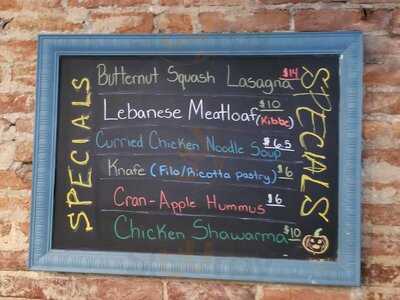 SPECIALS
Butternut Squash Lasagna $14
Lebanese Meatloaf (Kibbe) $10
Curried Chicken Noodle Soup $6.5
Knafe (Filo/Ricotta pastry) $6
Cran-Apple Hummus $6
Chicken Shawarma $10
SPECIALS